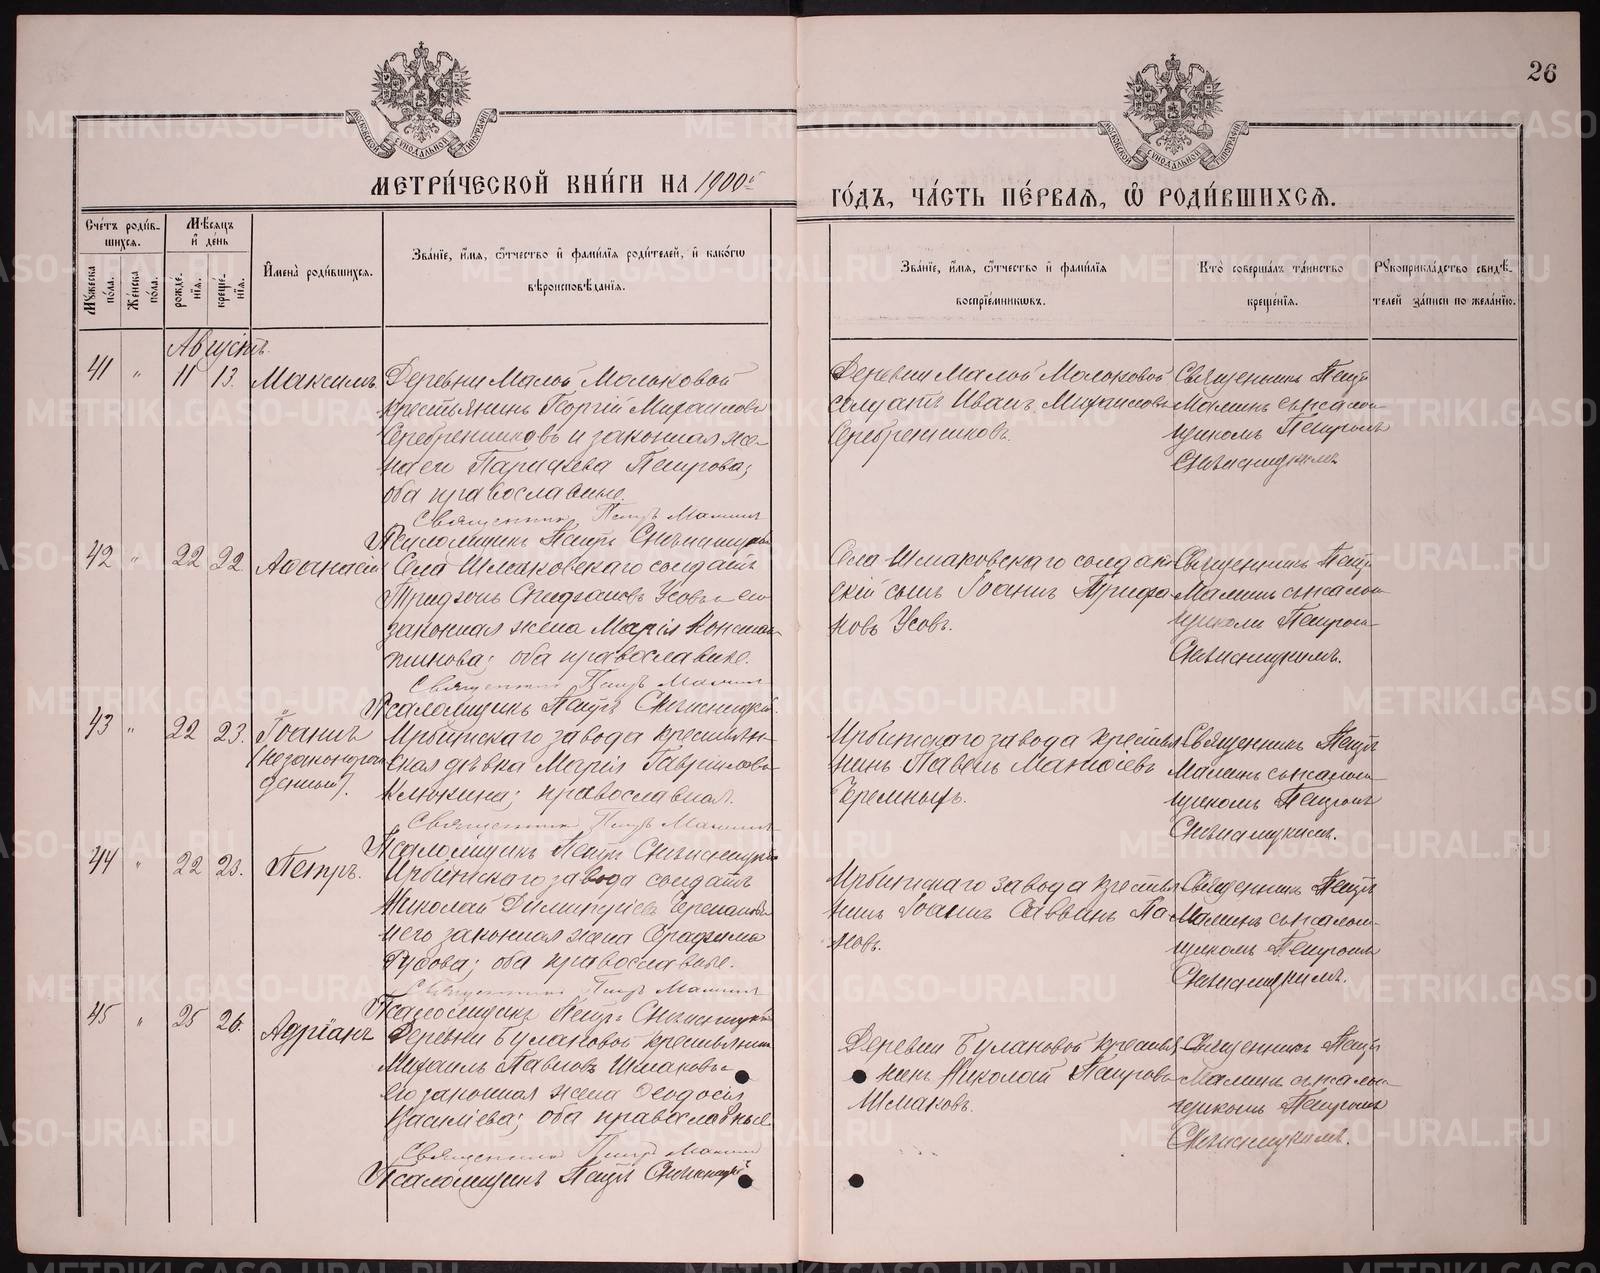 26
МЕТРИ́ЧЕСКОЙ КНИ́ГИ НА 1900й
ГО́ДЪ, ЧА́СТЬ ПЕ́РВАЯ, Ѡ РОДИ́ВШИХСЯ.
Сче́тъ роди́в-
шихся.
Мѣ́сяцъ
и҆ де́нь
Му́жеска
по́ла.
Же́нска
по́ла.
рожде́-
нїя.
креще́-
нїя.
И҆мена̀ роди́вшихся.
Зва́нїе, и҆́мя, ѻ҆́тчество и҆ фами́лїя роди́телей, и҆ како́гѡ
вѣроисповѣ́данїя.
Зва́нїе, и҆́мя, ѻ҆́тчество и҆ фами́лїя
воспрїе́мникѡвъ.
Кто̀ соверша́лъ та́инство
креще́нїя.
Рꙋкоприкла́дство свидѣ́-
телей за́писи по жела́нїю.
Августъ.
41 " 11 13. Максимъ
Деревни Малой Мольковой
крестьянинъ Георгій Михаиловъ
Серебренниковъ и законная же-
на его Параскева Петрова;
оба православные.
Священникъ Петръ Маминъ
Псаломщикъ Петръ
Деревни Малой Мольковой
солдатъ Иванъ Михаиловъ
Серебренниковъ.
Священникъ Петръ
Маминъ съ псалом-
щикомъ Петромъ
42 " 22 22 Аѳанасій
Села Шмаковскаго солдатъ
Трифонъ Стефановъ Усовъ и его
законная жена Марія Констан-
тинова; оба православные.
Священникъ Петръ Маминъ
Псаломщикъ Петръ
Села Шмаковскаго солдат-
скій сынъ Іоаннъ Трифо-
новъ Усовъ.
Священникъ Петръ
Маминъ съ псалом-
щикомъ Петромъ
43 " 22 23. Іоаннъ
(незаконорож-
денный).
Ирбитскаго завода крестьян-
ская дѣвка Марія Гаврилова
Клюкина; православная.
Священникъ Петръ Маминъ
Псаломщикъ Петръ
Ирбитскаго завода крестья-
нинъ Павелъ
Черемныхъ.
Священникъ Петръ
Маминъ съ псалом-
щикомъ Петромъ
44 " 22 23. Петръ.
Ирбитскаго завода солдатъ
Николай Димитріевъ Черепановъ
и его законная жена Серафима
оба православные.
Священникъ Петръ Маминъ
Псаломщикъ Петръ
Ирбитскаго завода крестья-
нинъ Іоаннъ Саввинъ Па-
новъ.
Священникъ Петръ
Маминъ съ псалом-
щикомъ Петромъ
45 " 25 26. Адріанъ
Деревни Булановой крестьянинъ
Михаилъ Павловъ Шмаковъ и
его законная жена Ѳеодосія
Василіева; оба православные
Священникъ Петръ Маминъ
Псаломщикъ Петръ
Деревни Булановой крестья-
нинъ Николай Петровъ
Шмаковъ.
Священникъ Петръ
Маминъ съ псалом-
щикомъ Петромъ
METRIKI.GASO-URAL.RU